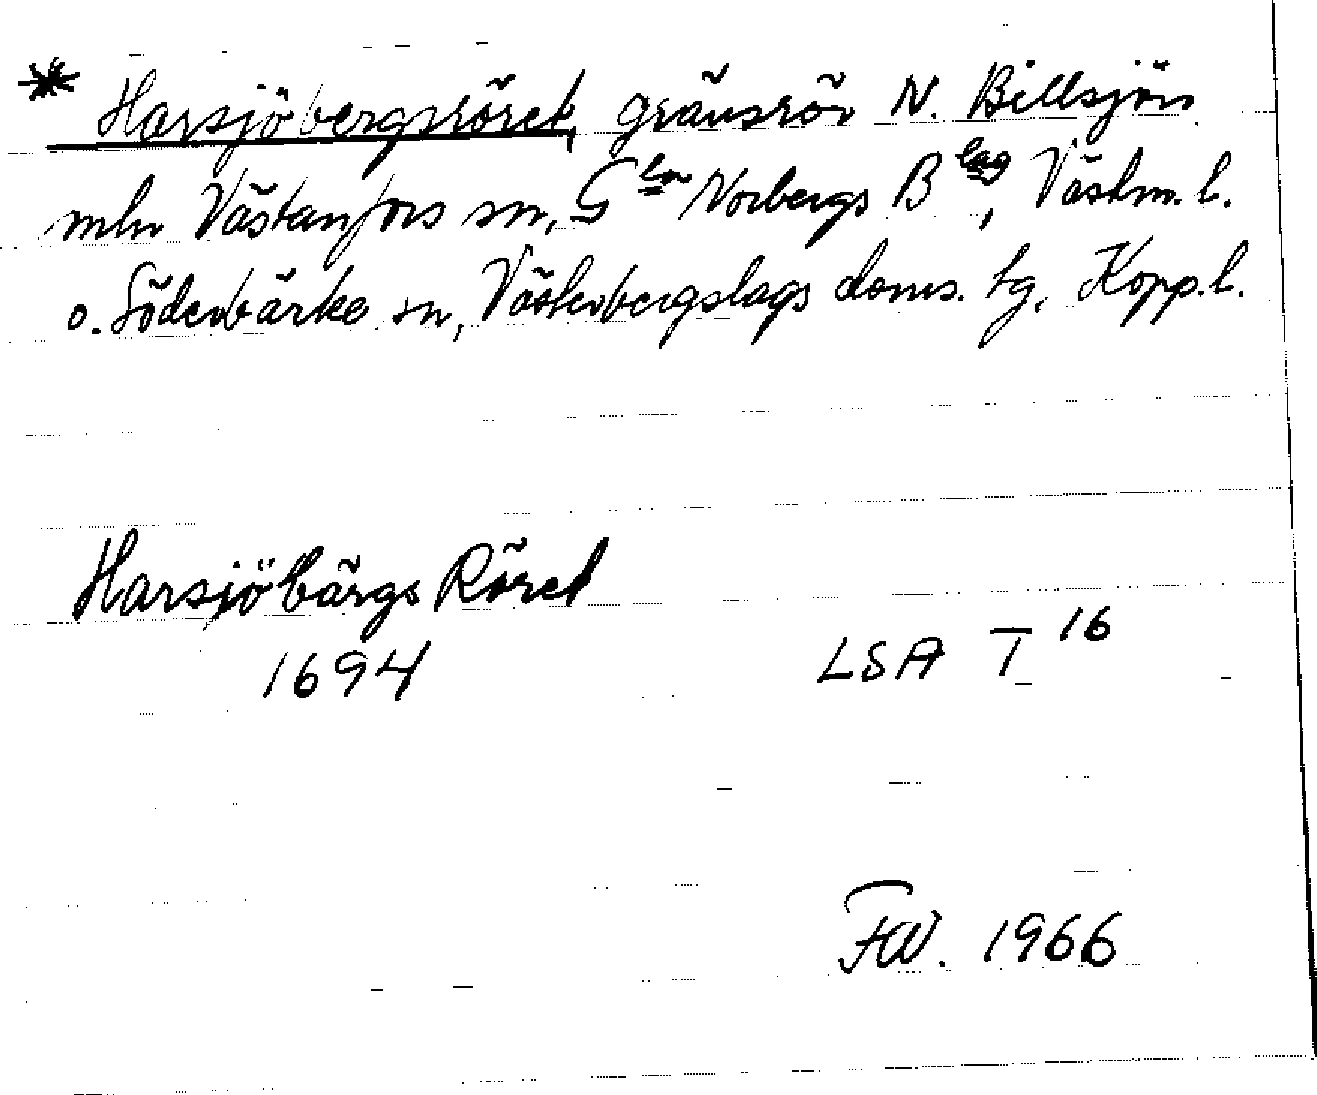 * Harsjöbergsröret, gränsrör N. Billsjön
mln Västanfors sn, Gla Norbergs Blag, Västm. l.
o. Söderbärke sn, Västerbergslags doms. tg, Kopp. l.
Harsjöbärgs Röret
1694
LSA T 16
FW. 1966